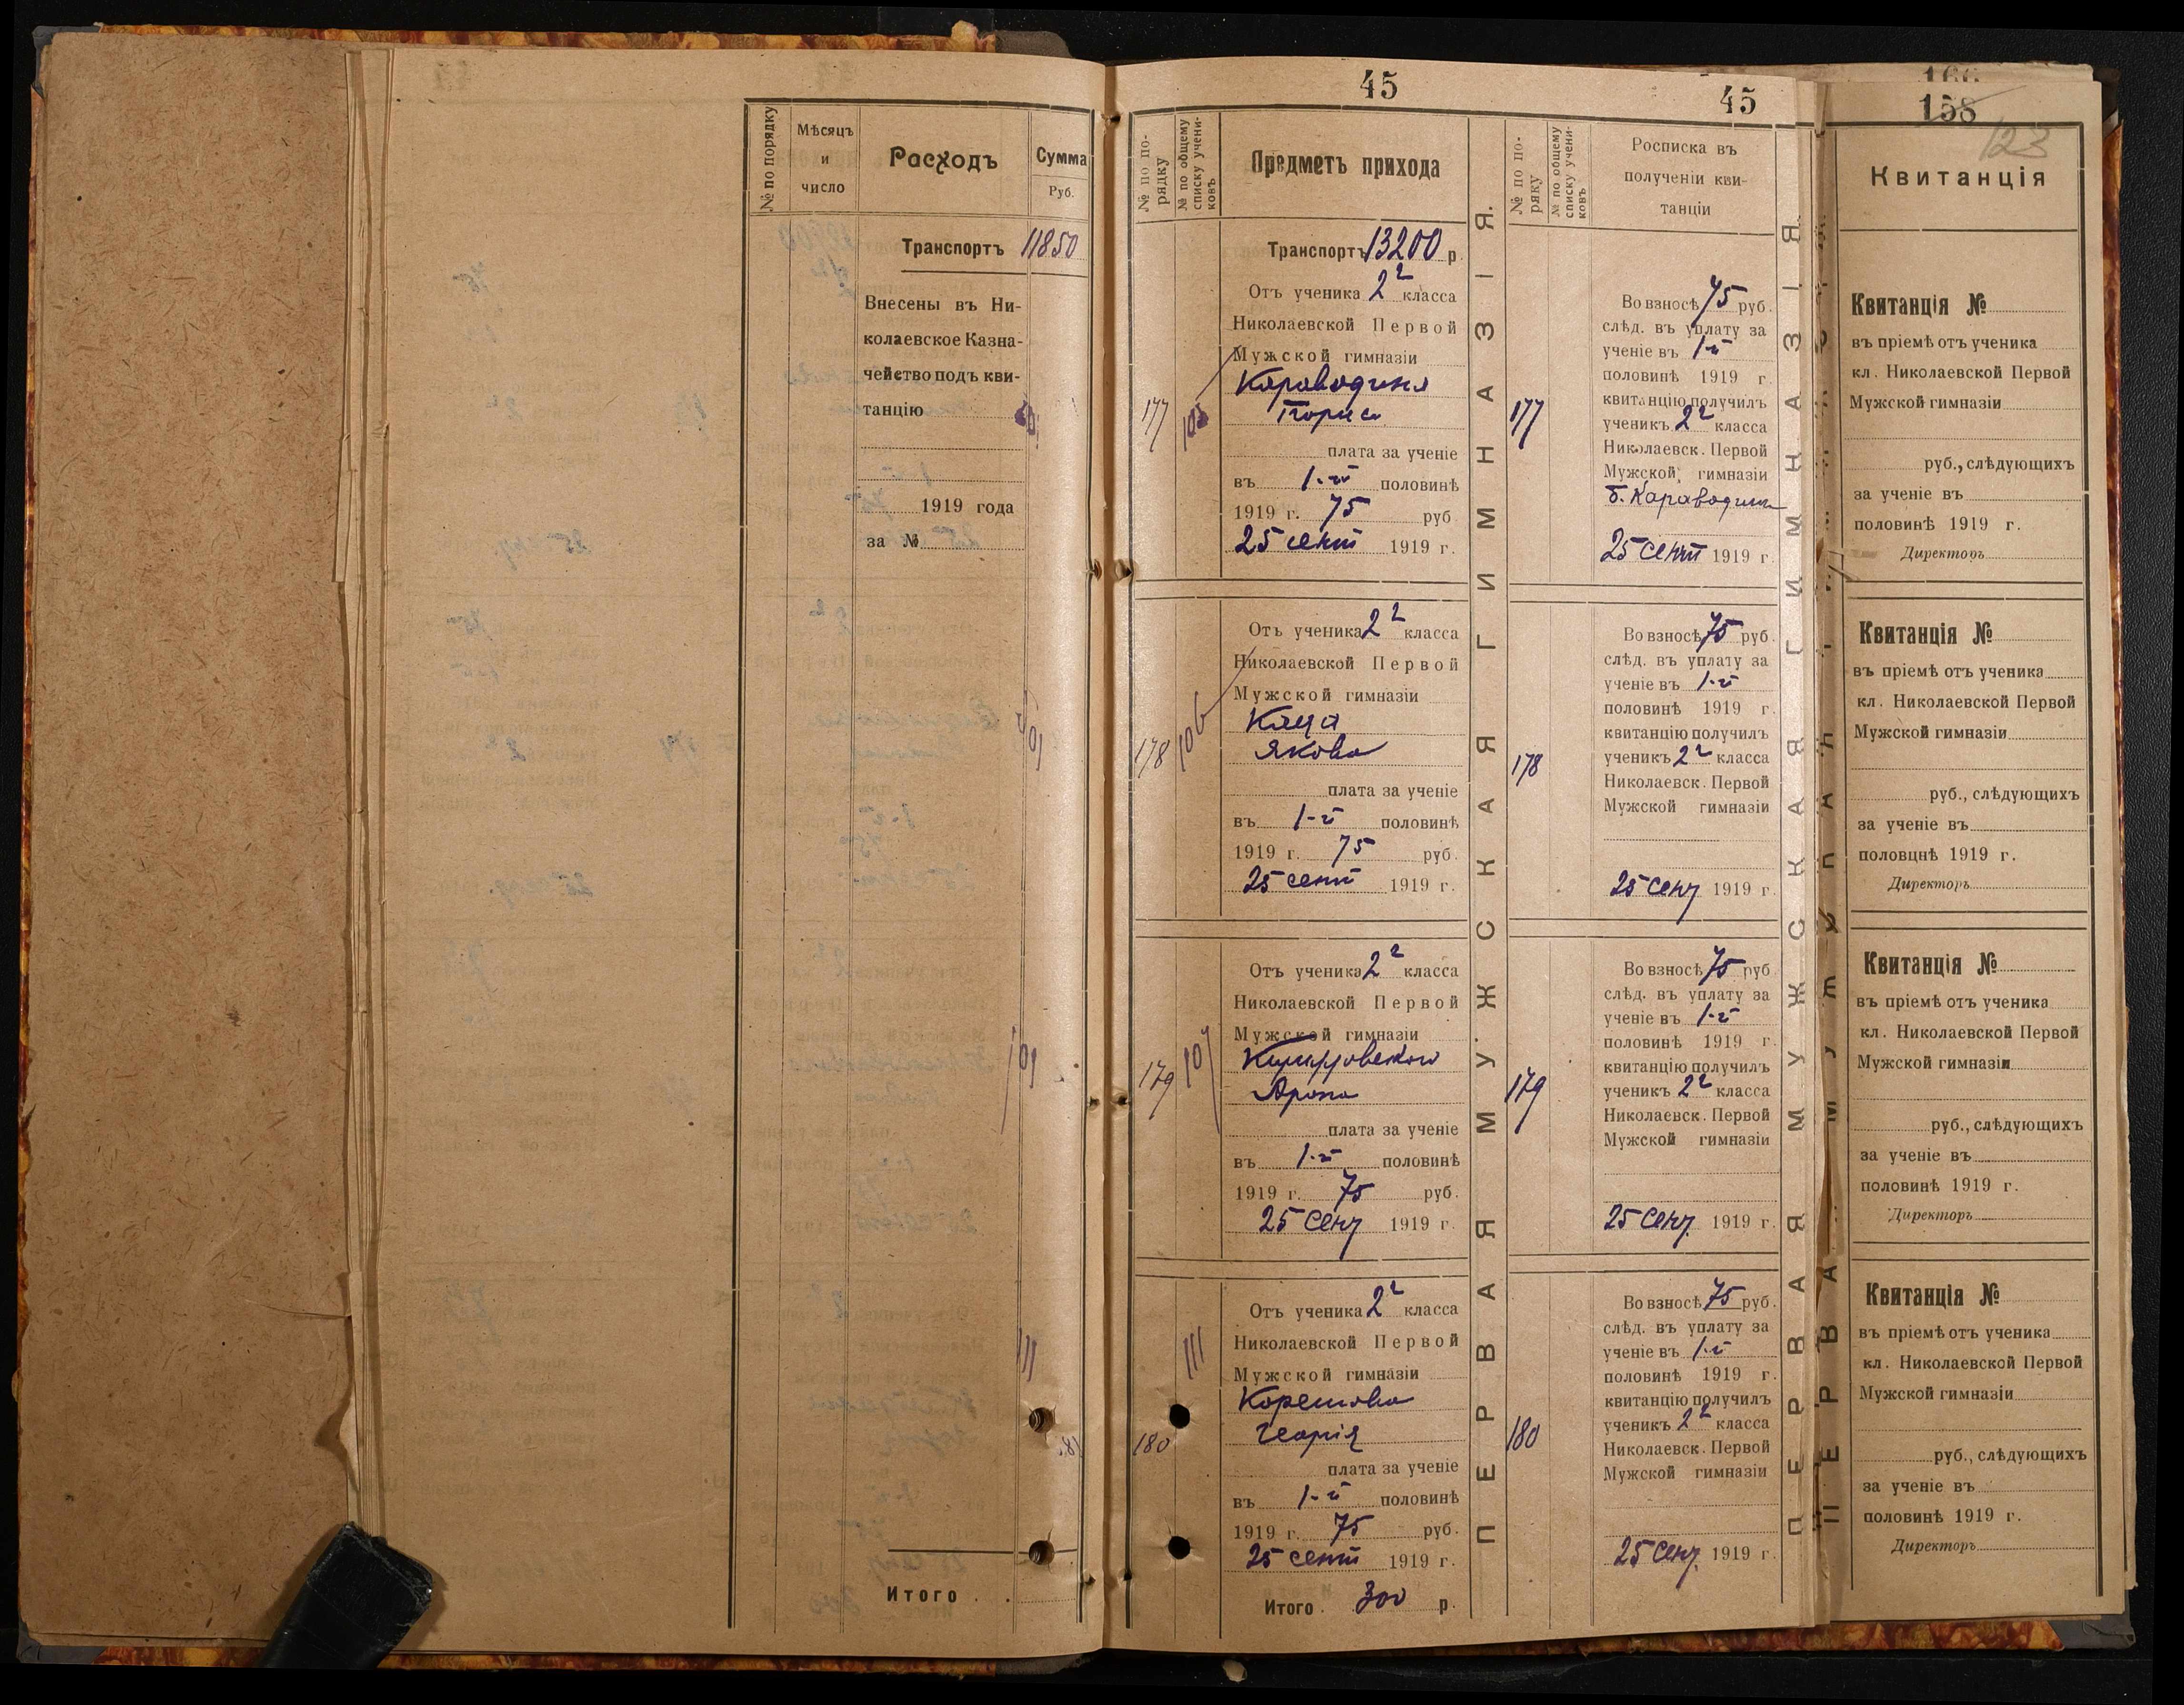 № по порядку
Мѣсяцъ
и
число
Расходъ
Сумма
Руб.
Транспортъ 11850
Внесены въ Ни-
колаевское Казна-
чейство подъ кви-
танцію
1919 года
за №
Итого
45
№ по по-
рядку
№ по общему
списку учени-
ковъ
Предметъ прихода
Транспортъ 13200 р
Отъ ученика 2² класса
Николаевской Первой
Мужской гимназіи
Караводина
Бориса
177
105
плата за ученіе
въ 1-й половинѣ
1919 г. 75 руб
25 сент 1919 г.
Отъ ученика 2² класса
Николаевской Первой
Мужской гимназіи
Каца
Якова
178
106
плата за ученіе
въ 1-й половинѣ
1919 г. 75 руб.
25 сент 1919 г.
Отъ ученика 2² класса
Николаевской Первой
Мужской гимназіи
179
107
плата за ученіе
въ 1-й половинѣ
1919 г. 75 руб.
25 сент 1919 г.
Отъ ученика 2² класса
Николаевской Первой
Мужской гимназіи
Корешова
Георгія
180
111
плата за ученіе
въ 1-й половинѣ
1919 г. 75 руб.
25 сент 1919 г.
Итого 300 р.
ПЕРВАЯ МУЖСКАЯ ГИМНАЗІЯ.
45
№ по по-
ряку
№ по общему
списку учени-
ковъ
Росписка въ
полученіи кви-
танціи
Во взносѣ 75 руб.
слѣд. въ уплату за
ученіе въ 1-й
половинѣ 1919 г.
квитанцію получилъ
177
ученикъ 2² класса
Николаевск. Первой
Мужской гимназіи
Б. Караводин
25 сент 1919 г.
Во взносѣ 75 руб.
слѣд. въ уплату за
ученіе въ 1-й
половинѣ 1919 г.
квитанцію получилъ
178
ученикъ 2² класса
Николаевск. Первой
Мужской гимназіи
25 сент 1919 г.
Во взносѣ 75 руб.
слѣд. въ уплату за
ученіе въ 1-й
половинѣ 1919 г.
квитанцію получилъ
179
ученикъ 2² класса
Николаевск. Первой
Мужской гимназіи
25 сент. 1919 г.
Во взносѣ 75 руб.
слѣд. въ уплату за
ученіе въ 1-й
половинѣ 1919 г.
квитанцію получилъ
180
ученикъ 2² класса
Николаевск. Первой
Мужской гимназіи
25 сент. 1919 г.
ПЕРВАЯ МУЖСКАЯ ГИМНАЗІЯ.
158
123
Квитанція
Квитанція №
въ пріемѣ отъ ученика
кл. Николаевской Первой
Мужской гимназіи
руб., слѣдующихъ
за ученіе въ
половинѣ 1919 г.
Директоръ
Квитанція №
въ пріемѣ отъ ученика
кл. Николаевской Первой
Мужской гимназіи
руб., слѣдующихъ
за ученіе въ
половцнѣ 1919 г.
Директоръ
Квитанція №
въ пріемѣ отъ ученика
кл. Николаевской Первой
Мужской гимназіи
руб., слѣдующихъ
за ученіе въ
половинѣ 1919 г.
Директоръ
Квитанція №
въ пріемѣ отъ ученика
кл. Николаевской Первой
Мужской гимназіи
руб., слѣдующихъ
за ученіе въ
половинѣ 1919 г.
Директоръ